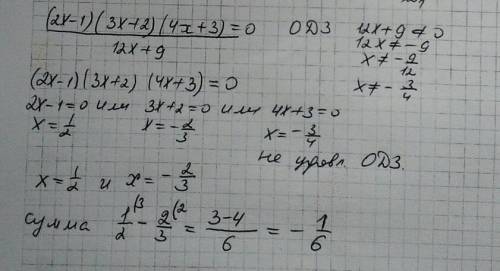 (2x-1)(3x+2)(4x+3)/12x+9 = 0 ОДЗ 12x+9≠0
12x≠-9
x≠-9/12
x≠-3/4
(2x-1)(3x+2)(4x+3)=0
2x-1=0 или 3x+2=0 или 4x+3=0
x=1/2 x=-2/3 x=-3/4
не удовл. ОДЗ.
x=1/2 и x=-2/3
сумма 1/2 (3 - 2/3 (2 = 3-4/6 = -1/6